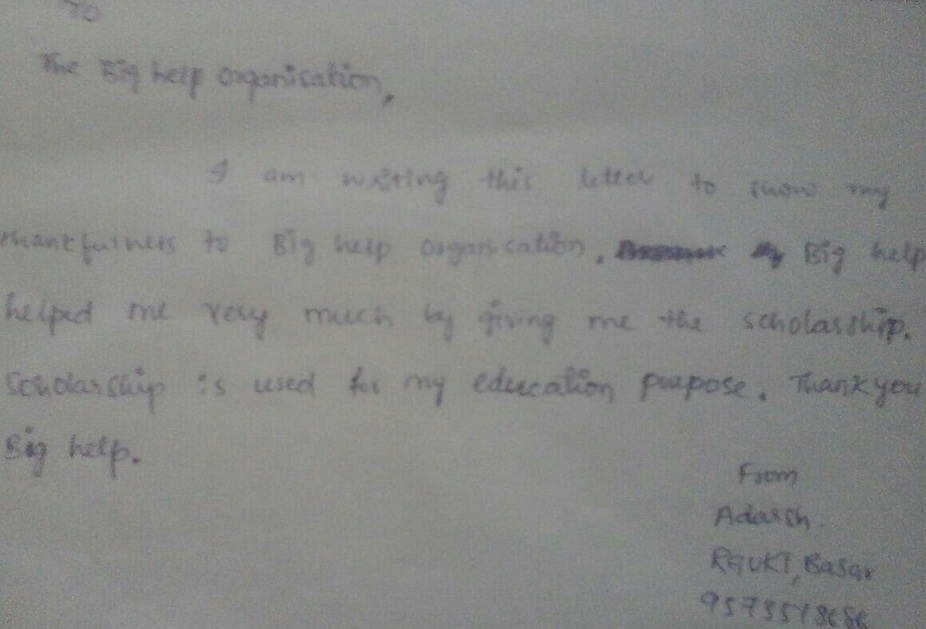 To
The Big help organisation,
I am writing this letter to show my
thankfulness to Big help organisation. Big help
helped me very much by giving me the scholarship.
Scholarship is used for my education purpose. Thankyou
Big help.
From
Adarsh.
RGUKT, Basar